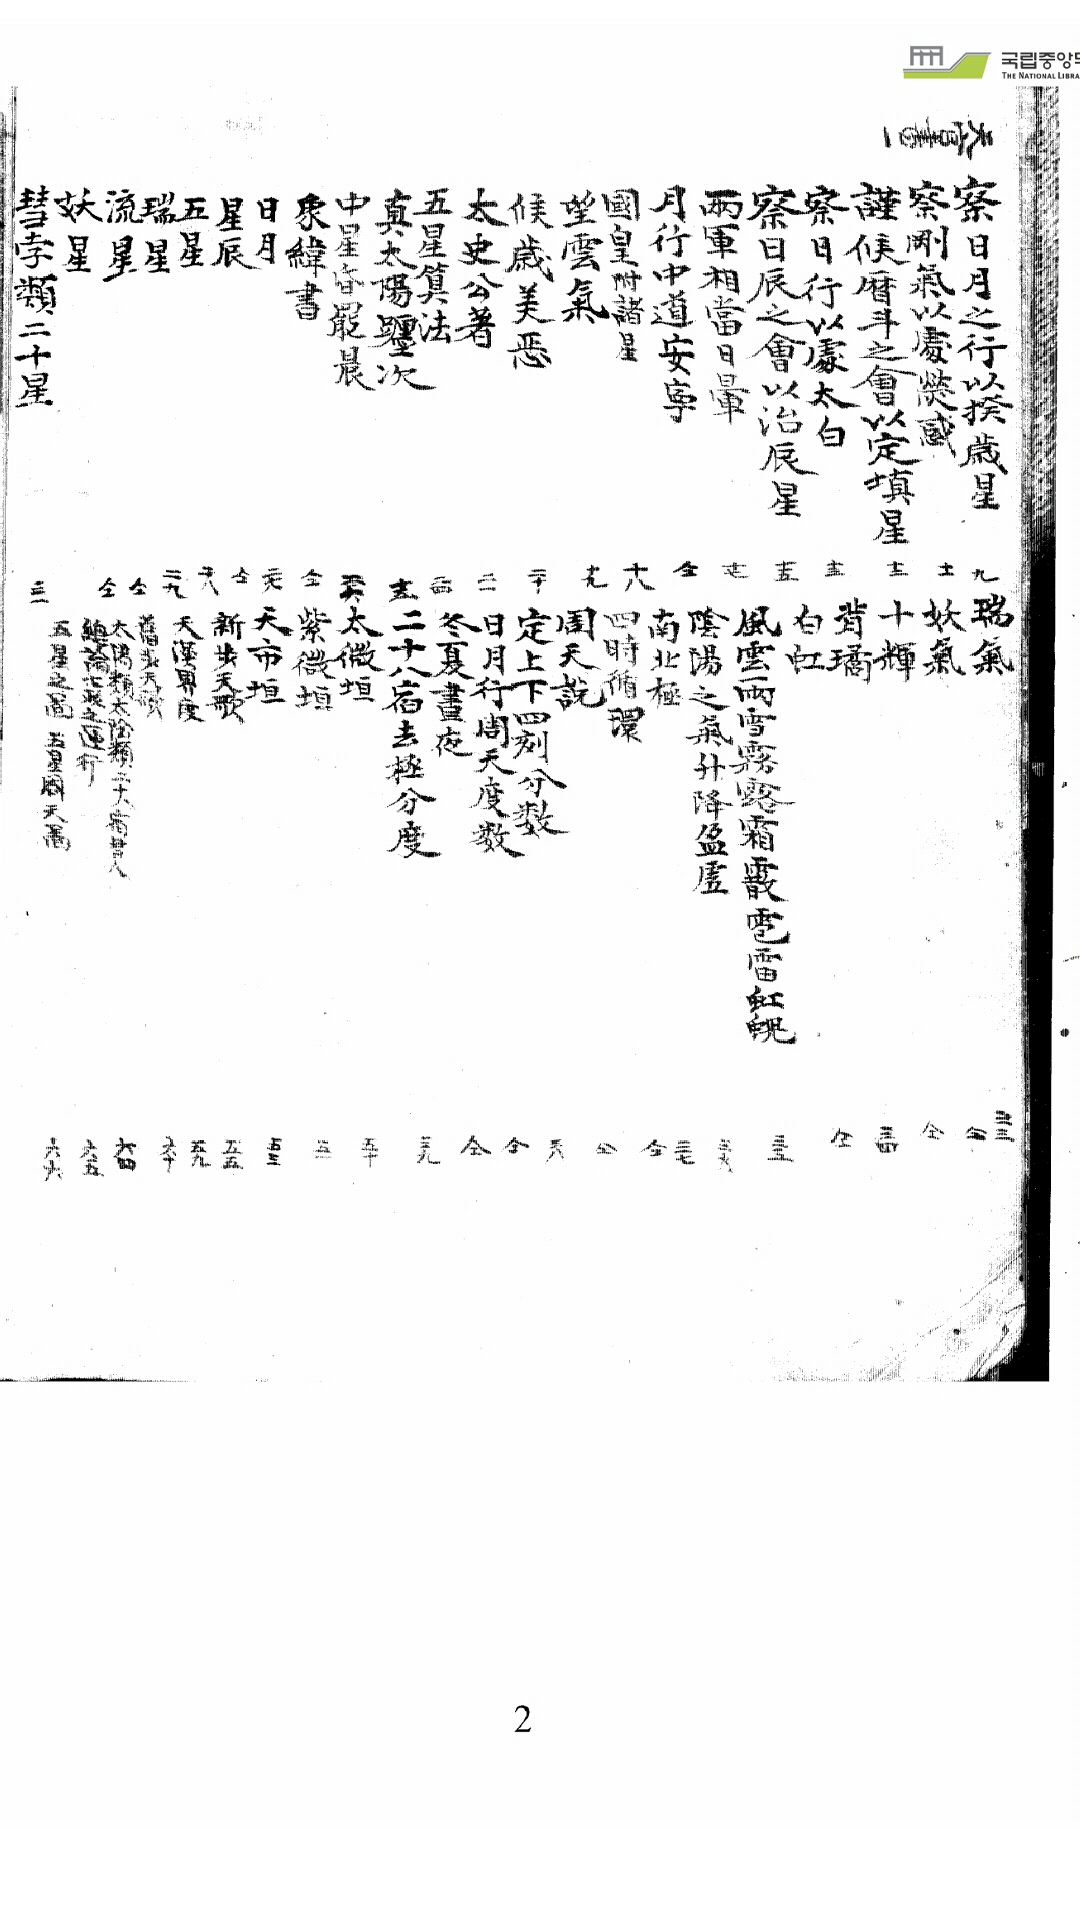 국립중앙도
THE NATIONAL LIBRA
天官書一
察日月之行以揆歲星
察剛氣以處熒惑
謹候曆斗之會以定填星
察日行以處太白
察日辰之會以治辰星
兩軍相當日暈
月行中道安寧
國皇附諸星
望雲氣
候歲美惡
太史公著
五星筭法
真太陽躔次
中星昏罷晨
象緯書
日月
星辰
五星
瑞星
流星
妖星
彗孛類二十星
九
十二
十八
十九
二十
二
仝
仝
二九
仝
仝
瑞氣
妖氣
十輝
背璚
白虹
風雲雨雪霧露霜霰雹雷虹蜺
陰陽之氣升降盈虛
南北極
四時循環
周天說
定上下四刻分数
日月行周天度数
冬夏晝夜
二十八宿去極分度
太微垣
紫微垣
天市垣
新步天歌
天漢界度
舊步天歌
太陽類太陰類二十八宿
總論七政之運行
五星之圖
仝
仝
仝
三五
三七
仝
仝
仝
三九
五十
五二
五三
五五
五九
六十
六四
六五
六六
2